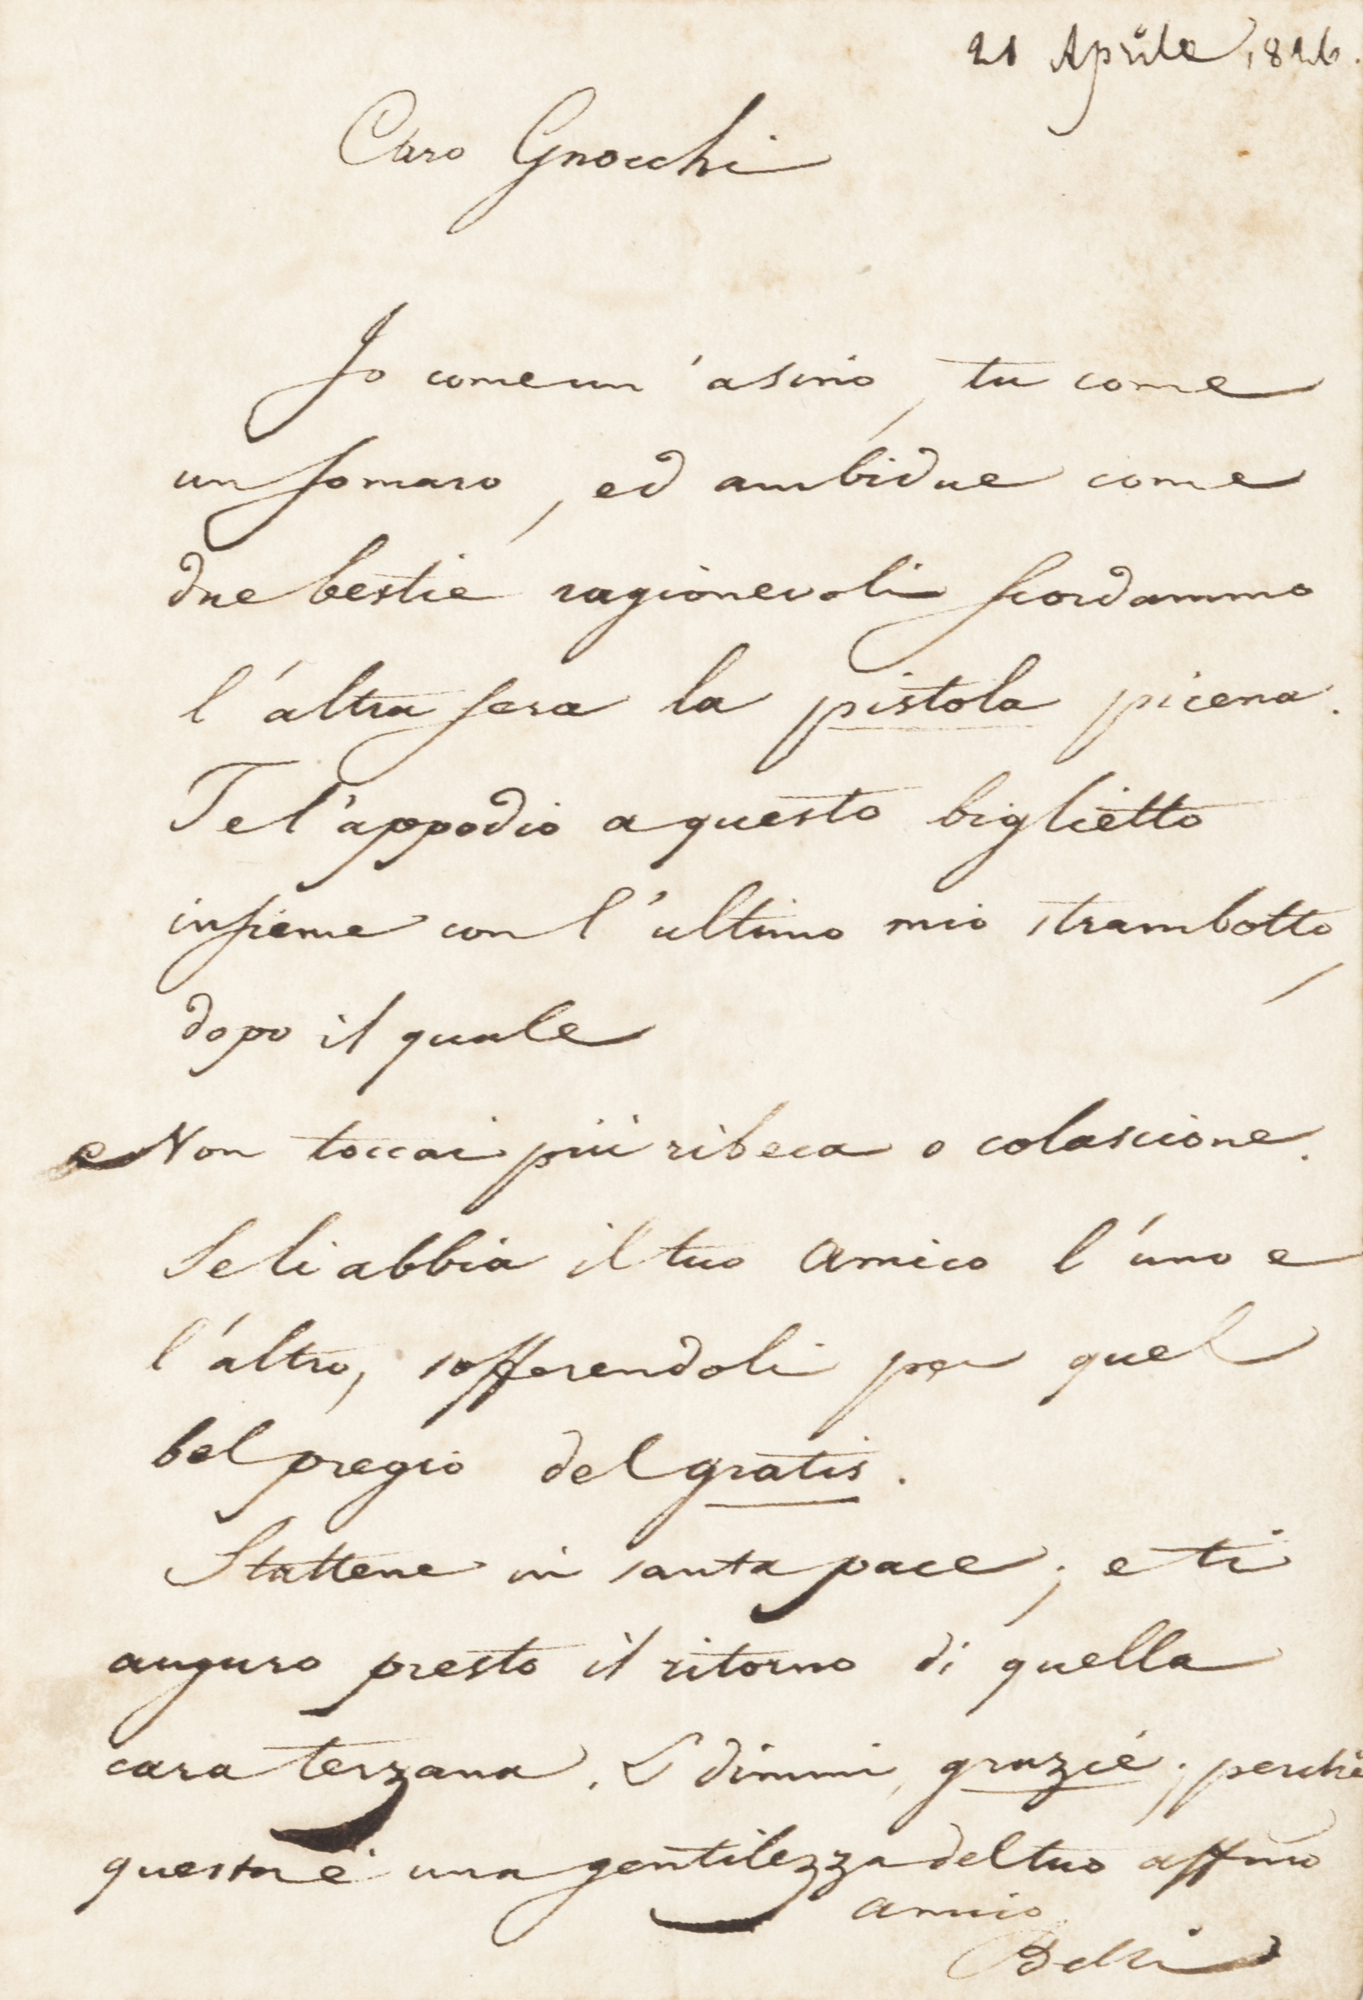 21 Aprile 1826.
Caro Gnocchi
Io come un'asino, tu come
un somaro, ed ambidue come
due bestie ragionevoli scordammo
l'altra sera la pistola picena.
Te l'appodio a questo biglietto
insieme con l'ultimo mio strambotto,
dopo il quale
Non toccai più ribeca o colascione.
Se li abbia il tuo Amico l'uno e
l'altro, sofferendoli per quel
bel pregio del gratis.
Stattene in santa pace; e ti
auguro presto il ritorno di quella
cara terzana. E dimmi, grazie; perchè
questa è una gentilezza del tuo affmo
amico
Belli